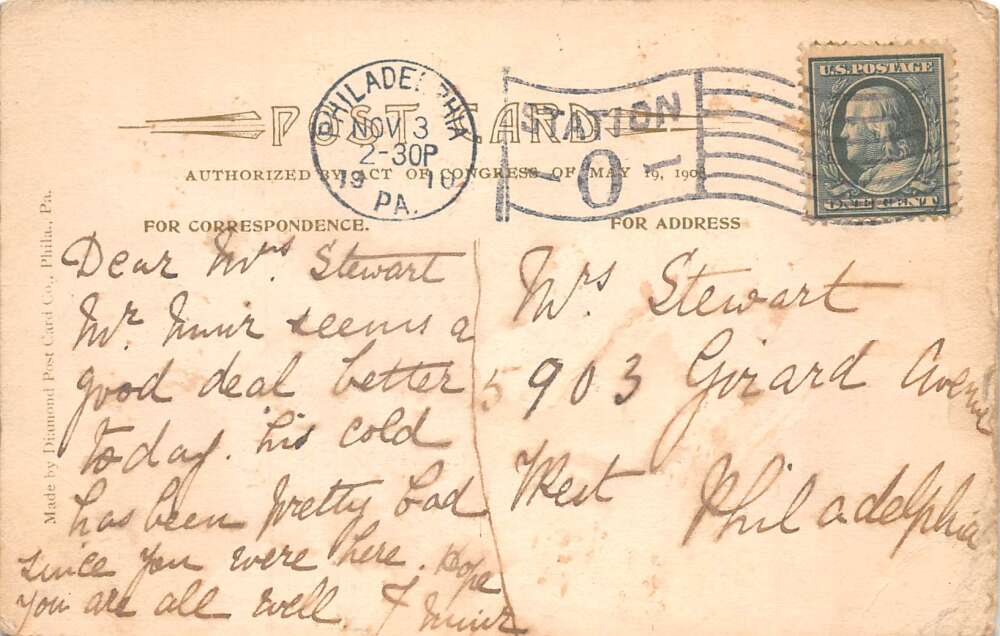 POST CARD
PHILADELPHIA
NOV 3
2-30P
19 10
PA.
STATION
- O -
U.S. POSTAGE
ONE CENT
AUTHORIZED BY ACT OF CONGRESS OF MAY 19, 1908
FOR CORRESPONDENCE.
FOR ADDRESS
Made by Diamond Post Card Co., Phila., Pa.
Dear Mrs Stewart
Mr. Muir seems a
good deal better
today. his cold
has been pretty bad
since you were here. Hope
you are all well. F Muir
Mrs Stewart
5903 Girard Avenue
West Philadelphia